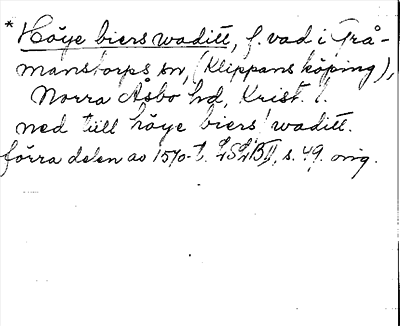 * Höye biers waditt, f. vad i Grå-
manstorps sn (Klippans köping),
Norra Åsbo hd, Krist. l.
ned tiill höye biers! waditt.
förra delen av 1570-t. s. 49. orig.